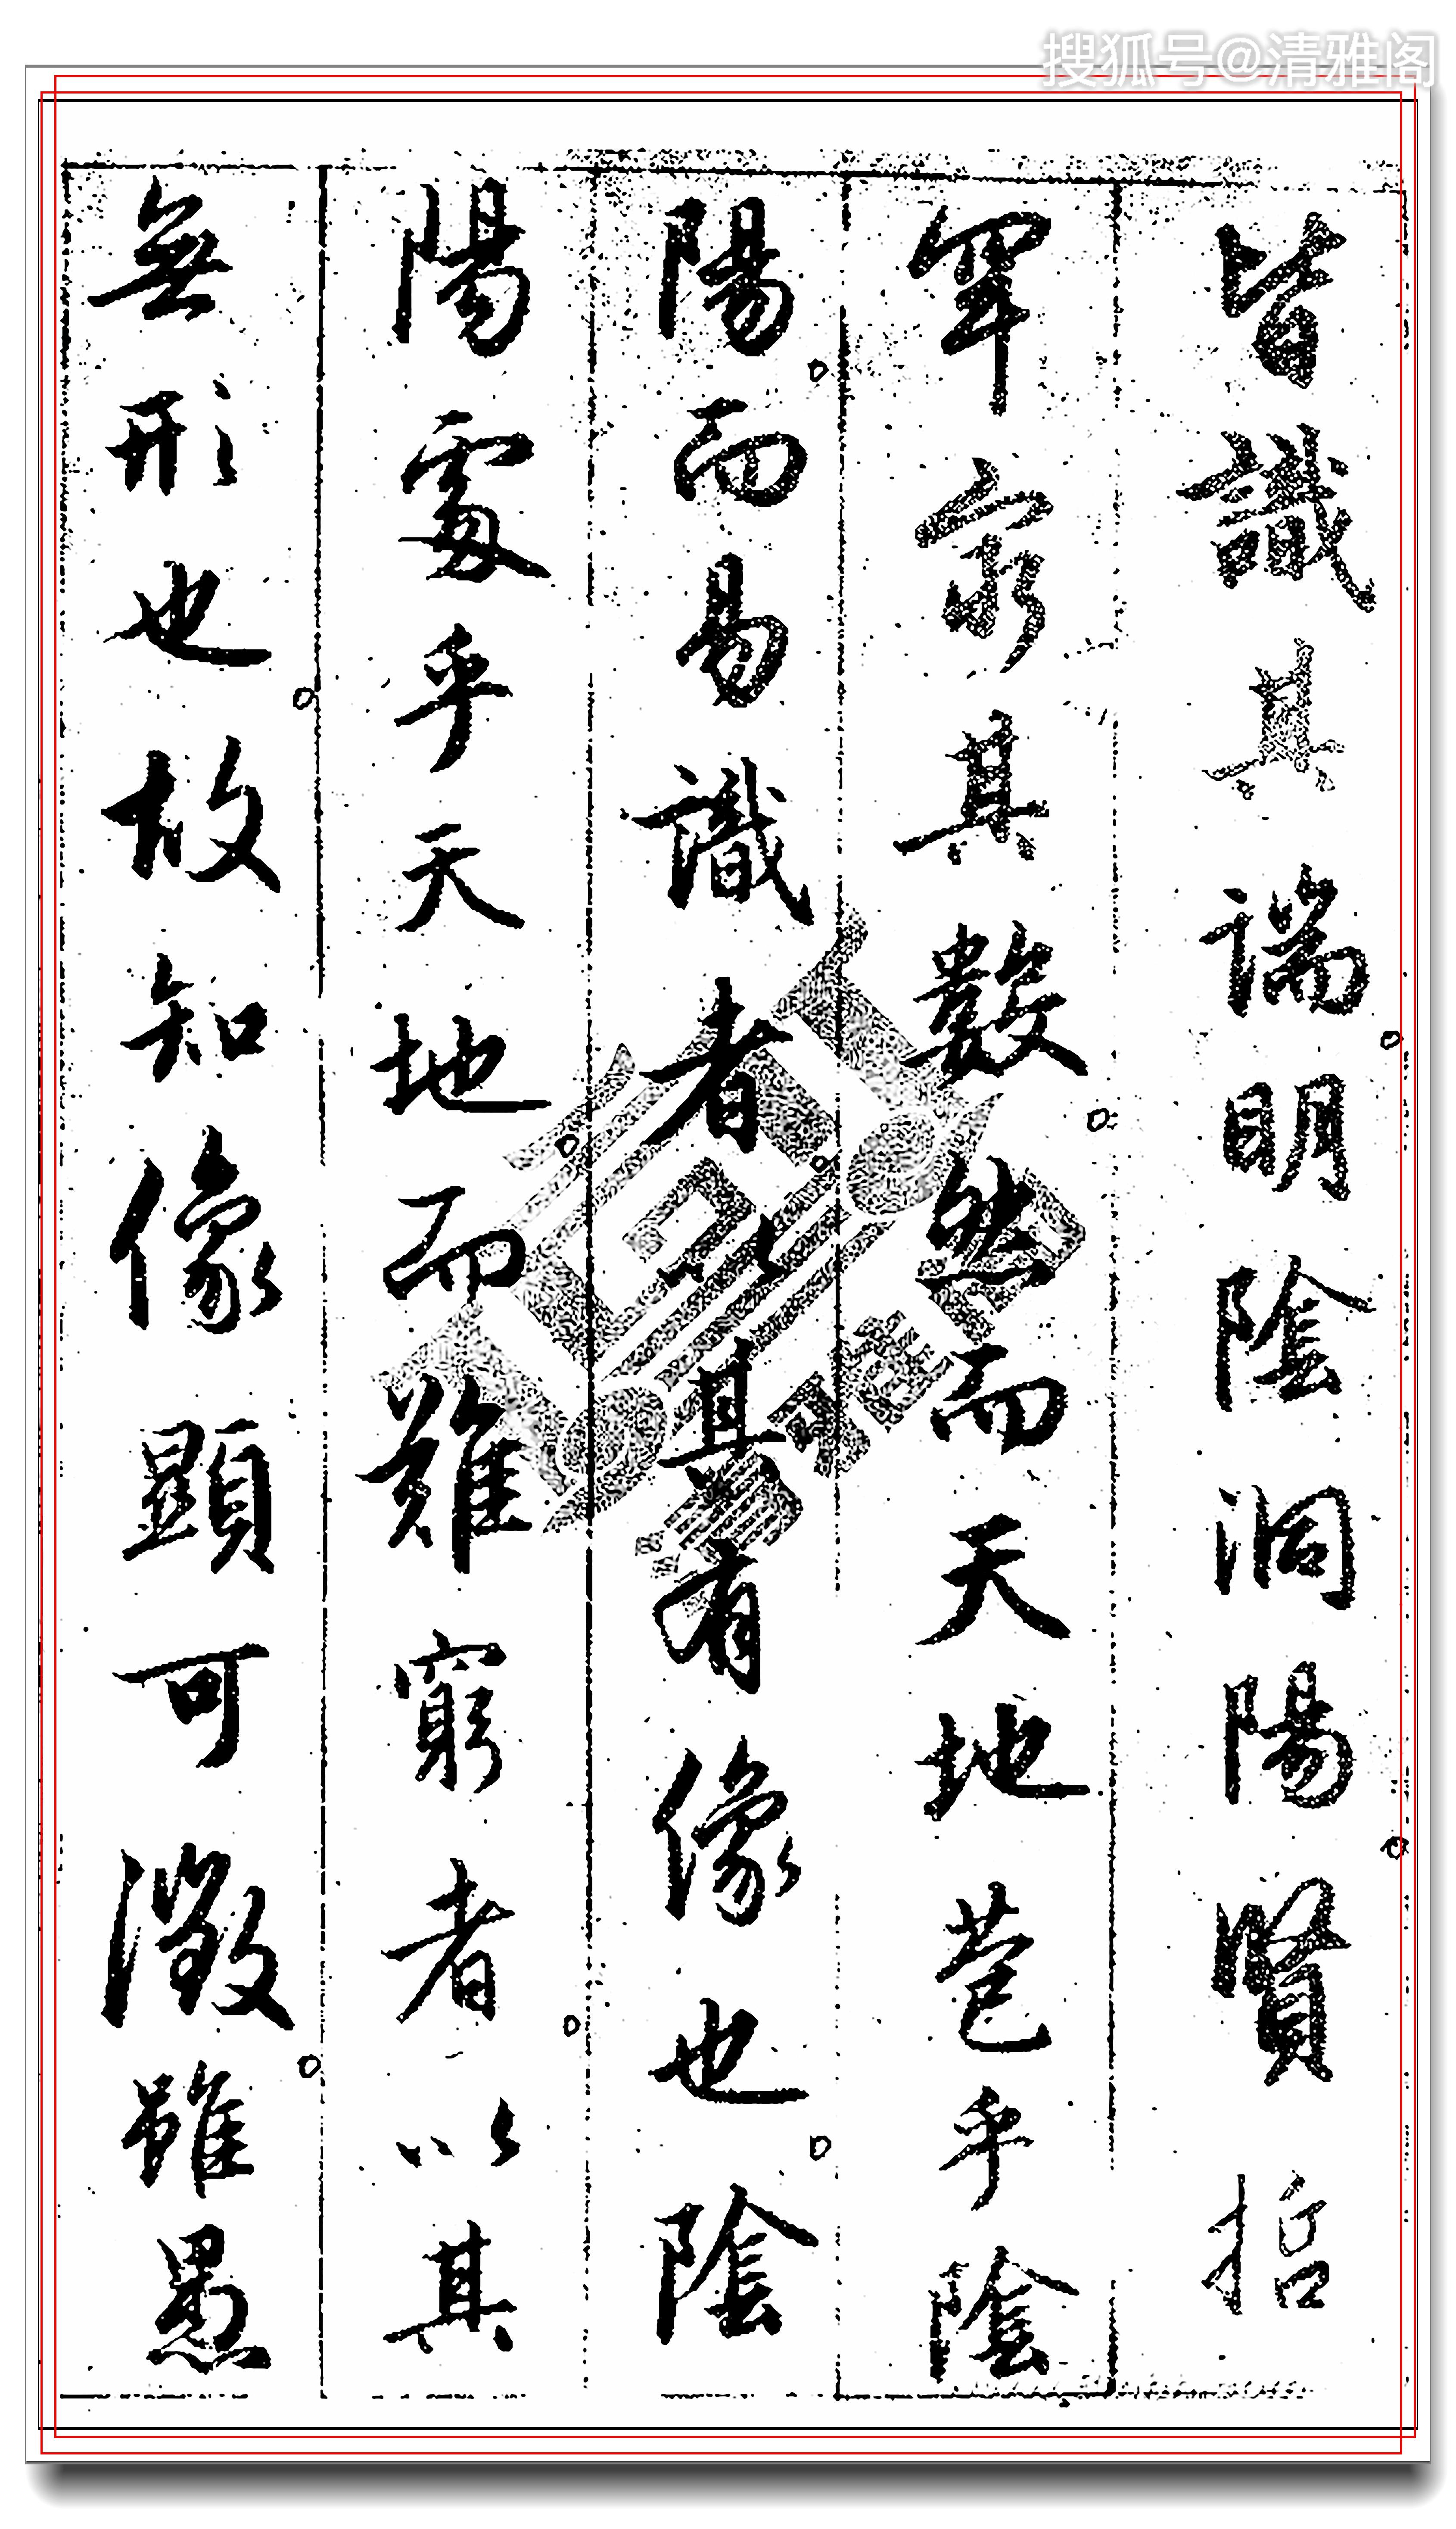 搜狐号@清雅阁
皆識其端明陰洞陽賢哲
罕窮其數然而天地苞乎陰
陽而易識者以其有像也陰
陽處乎天地而難窮者以其
無形也故知像顯可徵雖愚